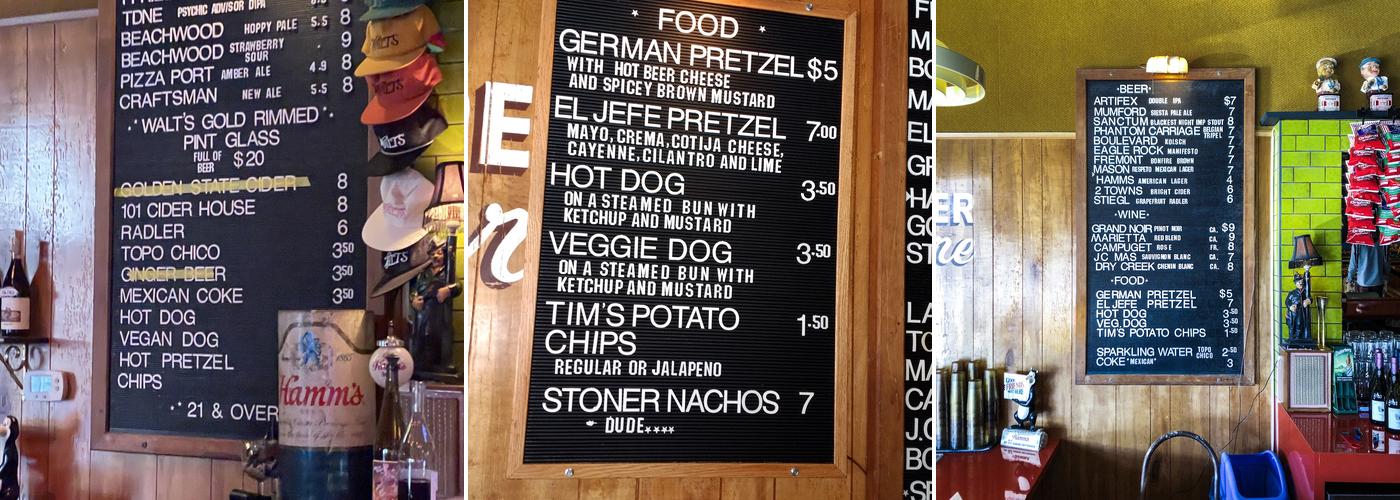 TDNE PSYCHIC ADVISOR DIPA 8
BEACHWOOD HOPPY PALE 5.5 8
BEACHWOOD STRAWBERRY SOUR 9
PIZZA PORT AMBER ALE 4.9 8
CRAFTSMAN NEW ALE 5.5 8
WALT'S GOLD RIMMED
PINT GLASS
FULL OF BEER $20
GOLDEN STATE CIDER 8
101 CIDER HOUSE 8
RADLER 6
TOPO CHICO 3.50
GINGER BEER 3.50
MEXICAN COKE 3.50
HOT DOG
VEGAN DOG
HOT PRETZEL
CHIPS
21 & OVER
Hamm's
FOOD
GERMAN PRETZEL $5
WITH HOT BEER CHEESE
AND SPICEY BROWN MUSTARD
EL JEFE PRETZEL 7.00
MAYO,CREMA,COTIJA CHEESE,
CAYENNE,CILANTRO AND LIME
HOT DOG 3.50
ON A STEAMED BUN WITH
KETCHUP AND MUSTARD
VEGGIE DOG 3.50
ON A STEAMED BUN WITH
KETCHUP AND MUSTARD
TIM'S POTATO 1.50
CHIPS
REGULAR OR JALAPENO
STONER NACHOS 7
DUDE****
BEER
ARTIFEX DOUBLE IPA $7
MUMFORD SIESTA PALE ALE 7
SANCTUM BLACKEST NIGHT IMP STOUT 8
PHANTOM CARRIAGE BELGIAN TRIPEL 7
BOULEVARD KOLSCH 7
EAGLE ROCK MANIFESTO 7
FREMONT BONFIRE BROWN 7
MASON RESPETO MEXICAN LAGER 7
HAMMS AMERICAN LAGER 4
2 TOWNS BRIGHT CIDER 6
STIEGL GRAPEFRUIT RADLER 6
WINE
GRAND NOIR PINOT NOIR CA. $9
MARIETTA RED BLEND CA. 9
CAMPUGET ROSE FR. 8
JC MAS SAUVIGNON BLANC CA. 7
DRY CREEK CHENIN BLANC CA. 8
FOOD
GERMAN PRETZEL $5
EL JEFE PRETZEL 7
HOT DOG 3.50
VEG. DOG 3.50
TIM'S POTATO CHIPS 1.50
SPARKLING WATER TOPO CHICO 2.50
COKE "MEXICAN" 3